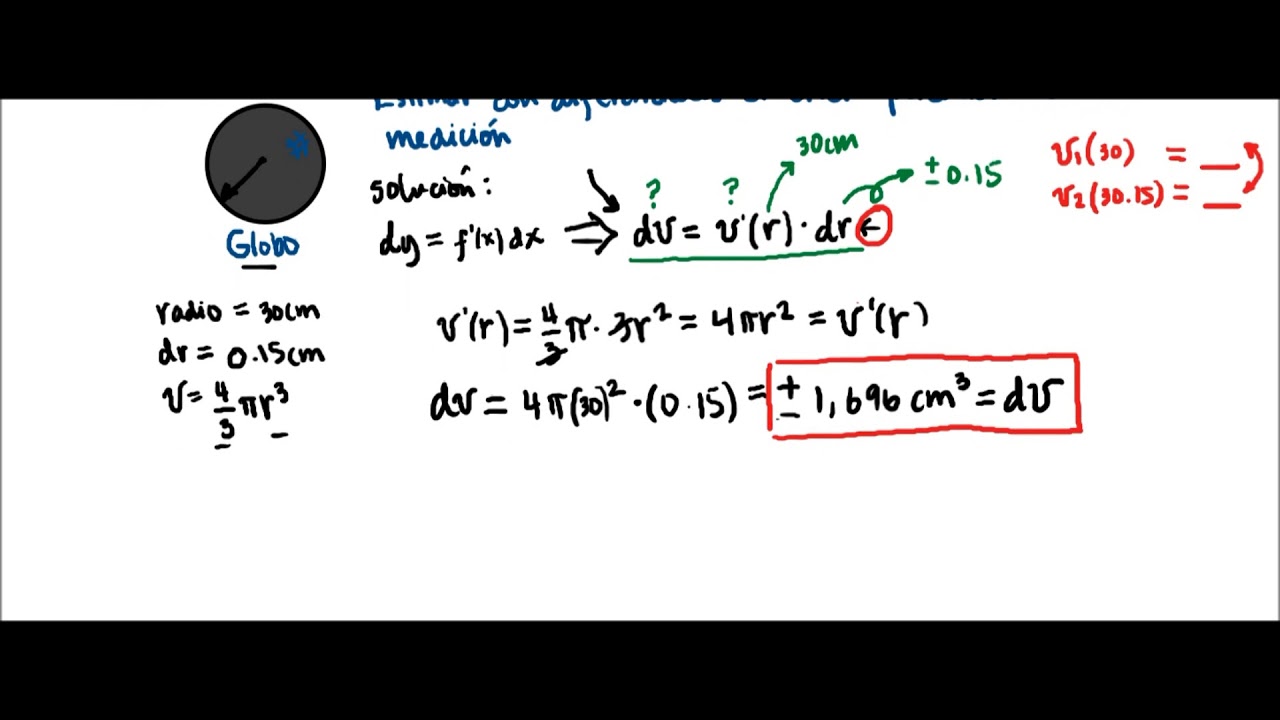 medición
30cm
± 0.15
solución:
? ?
dy = f'(x) dx ⇒ dv = v'(r) · dr ←
v₁(30) = __
v₂(30.15) = __
Globo
radio = 30cm
dr = 0.15cm
v = 4/3 πr³
v'(r) = 4/3 π · 3r² = 4πr² = v'(r)
dv = 4π(30)² · (0.15) = ± 1,696 cm³ = dv